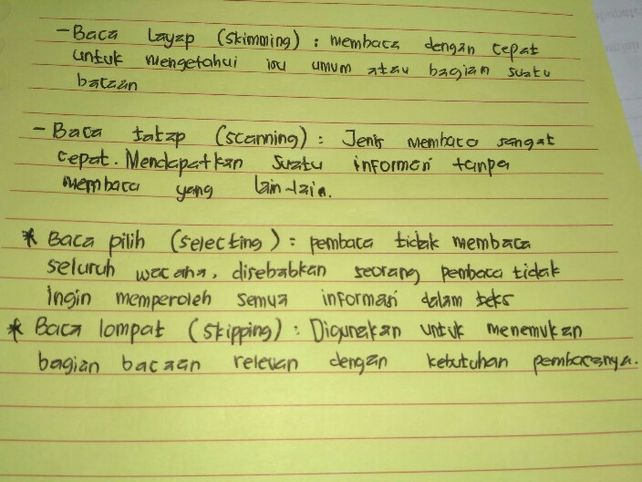 - Baca layap (skimming) : membaca dengan cepat
untuk mengetahui isu umum atau bagian suatu
bacaan
- Baca tatap (scanning) : Jenis membaca sangat
cepat. Mendapatkan suatu informasi tanpa
membaca yang lain-lain.
* Baca pilih (selecting) : pembaca tidak membaca
seluruh wacana, disebabkan seorang pembaca tidak
ingin memperoleh semua informasi dalam teks
* Baca lompat (skipping) : Digunakan untuk menemukan
bagian bacaan relevan dengan kebutuhan pembacanya.